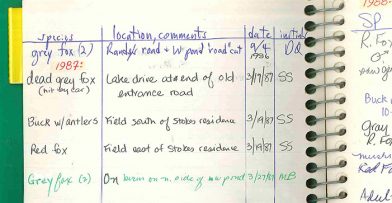 species location, comments date initials
grey fox (2) Randy's road + W pond "road" cut 9/4 DQ
1986
1987:
dead grey fox Lake drive at end of old 3/17/87 SS
(hit by car) entrance road
Buck w/antlers Field south of Stokes residence 3/19/87 SS
Red fox Field east of Stokes residence 3/19/87 SS
Grey fox (2) On berm on n. side of new pond 3/27/87 MB
1988-
SP
R. Fo
Buck
10-
gray
R. Fo
Red F
Adul